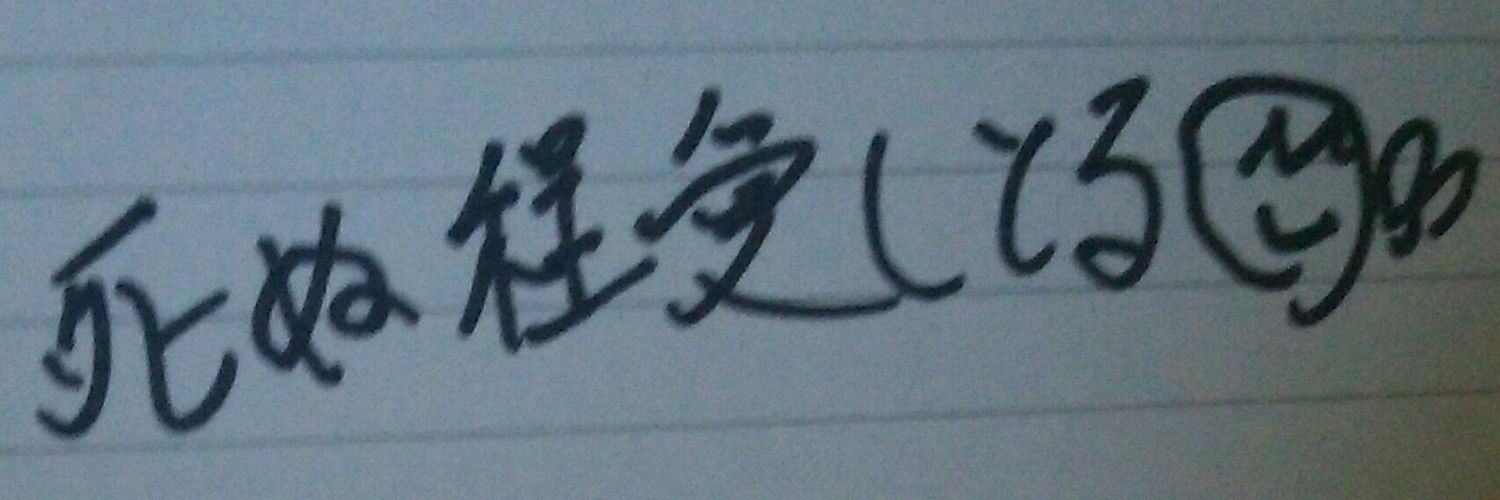 死ぬ程愛してる